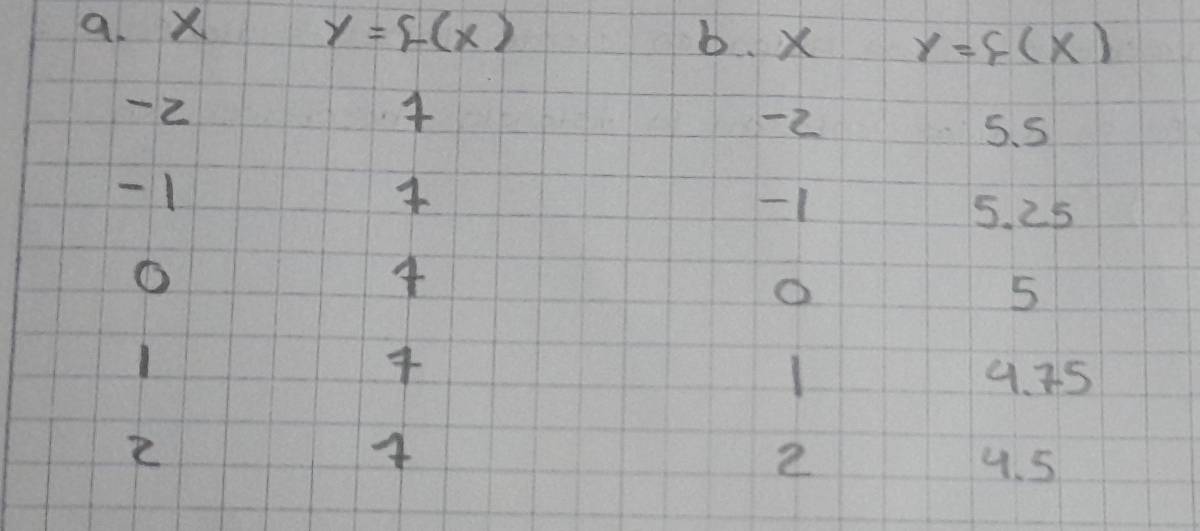 a. x y=f(x) b. x y=f(x)
-2 7 -2 5.5
-1 7 -1 5.25
0 7 0 5
1 7 1 4.75
2 7 2 4.5